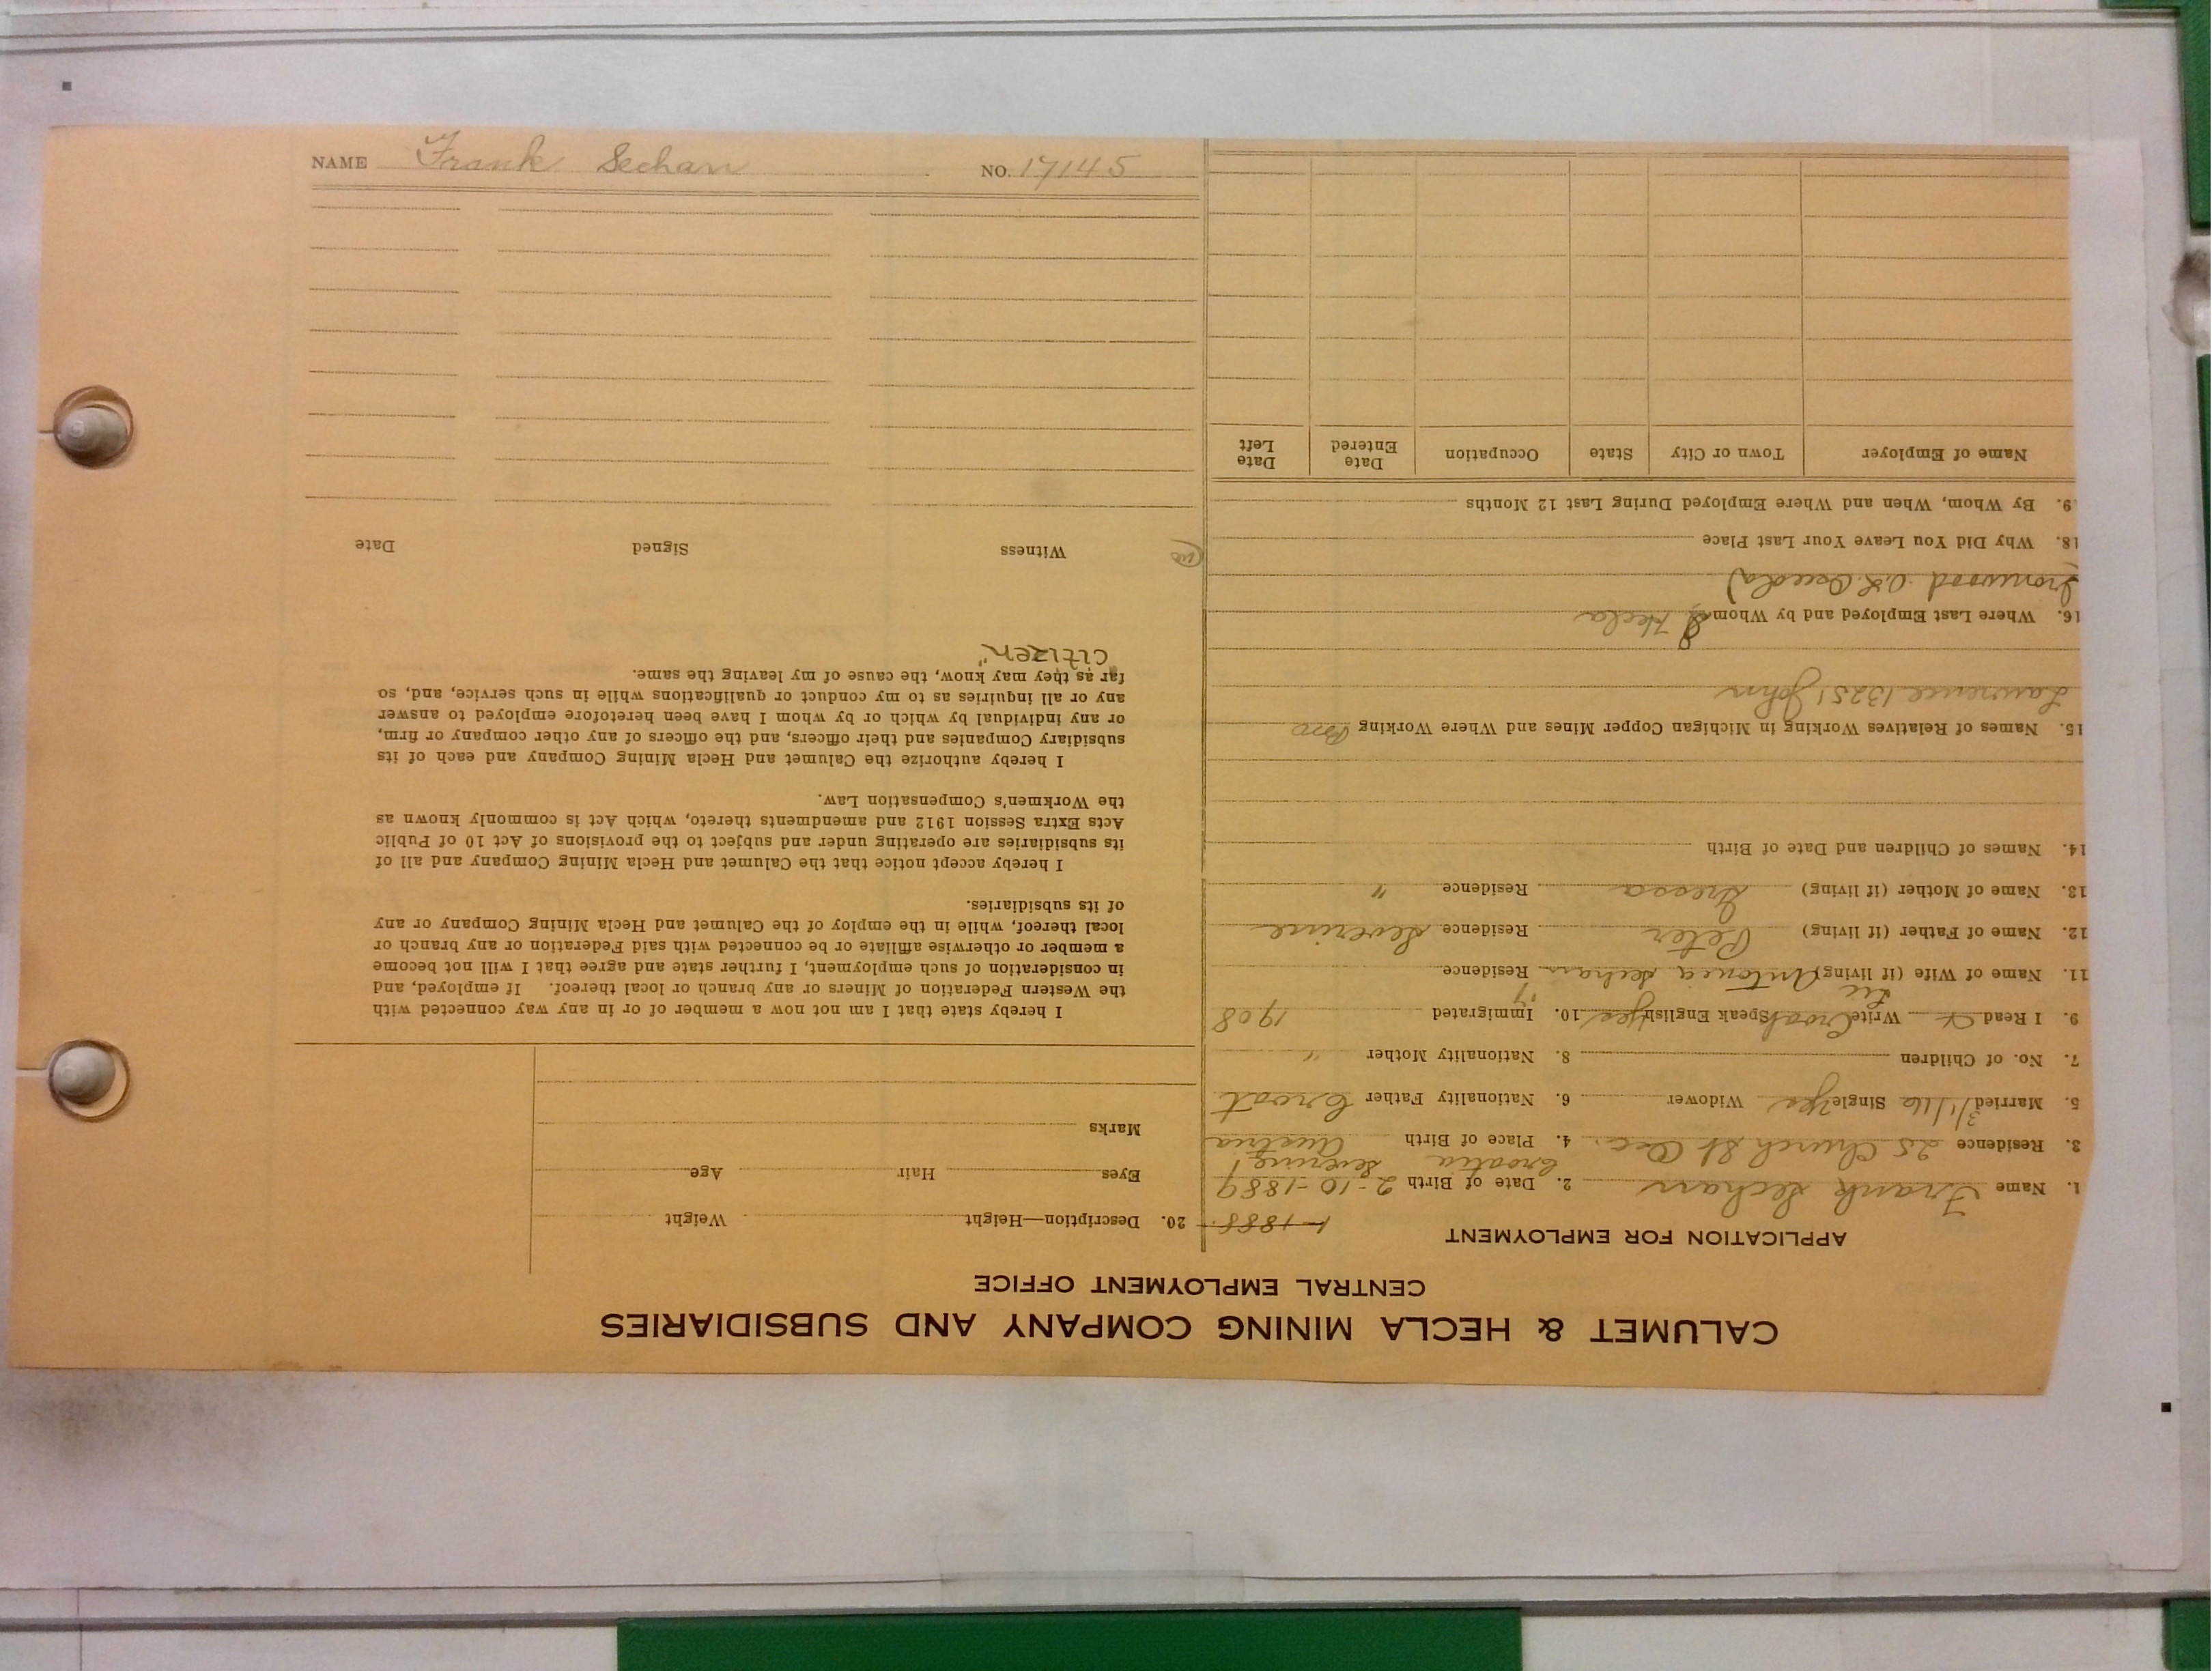 NAME Frank Sechan NO. 17145
CALUMET & HECLA MINING COMPANY AND SUBSIDIARIES
CENTRAL EMPLOYMENT OFFICE
APPLICATION FOR EMPLOYMENT
1-1888
1. Name Frank Sechan 2. Date of Birth 2-10-1889
Croatia Severine
3. Residence 25 Church St 4. Place of Birth Austria
5. Married 3/1/16 Single yes Widower 6. Nationality Father Croat
7. No. of Children 8. Nationality Mother "
9. I Read & Write Croat Speak English yes 10. Immigrated 1908
11. Name of Wife (if living) Antonia Sechan Residence
12. Name of Father (if living) Peter Residence Severine
13. Name of Mother (if living) Residence "
14. Names of Children and Date of Birth
15. Names of Relatives Working in Michigan Copper Mines and Where Working Bro
Lawrence 1325! John
16. Where Last Employed and by Whom Hecla
Ironwood
18. Why Did You Leave Your Last Place
19. By Whom, When and Where Employed During Last 12 Months
Name of Employer Town or City State Occupation Date Entered Date Left
20. Description—Height Weight
Eyes Hair Age
Marks
I hereby state that I am not now a member of or in any way connected with
the Western Federation of Miners or any branch or local thereof. If employed, and
in consideration of such employment, I further state and agree that I will not become
a member or otherwise affiliate or be connected with said Federation or any branch or
local thereof, while in the employ of the Calumet and Hecla Mining Company or any
of its subsidiaries.
I hereby accept notice that the Calumet and Hecla Mining Company and all of
its subsidiaries are operating under and subject to the provisions of Act 10 of Public
Acts Extra Session 1912 and amendments thereto, which Act is commonly known as
the Workmen's Compensation Law.
I hereby authorize the Calumet and Hecla Mining Company and each of its
subsidiary Companies and their officers, and the officers of any other company or firm,
or any individual by which or by whom I have been heretofore employed to answer
any or all inquiries as to my conduct or qualifications while in such service, and, so
far as they may know, the cause of my leaving the same.
Citizen"
Witness Signed Date